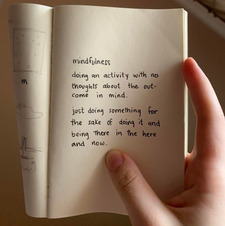 mindfulness
doing an activity with no
thoughts about the out-
come in mind.
just doing something for
the sake of doing it and
being there in the here
and now.
m